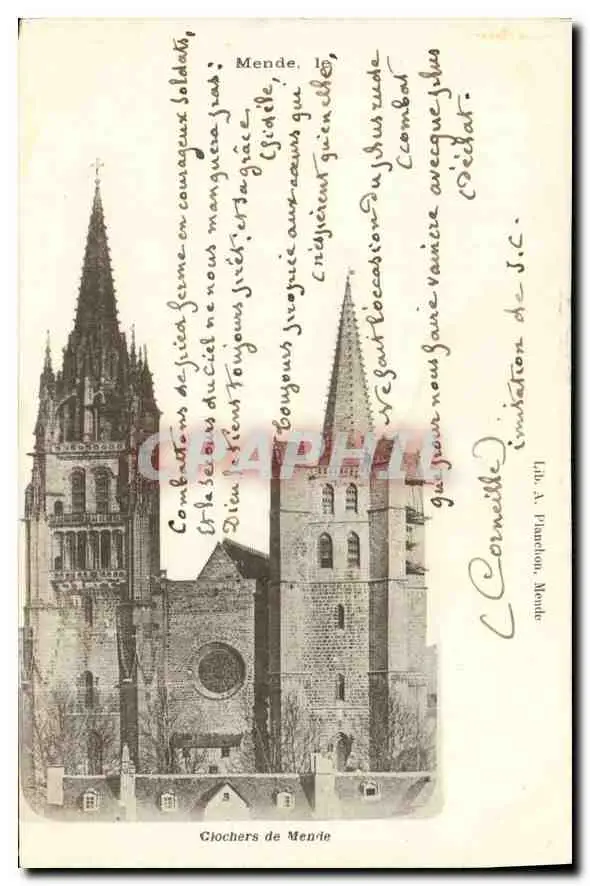 Mende, le
Combattons de pied ferme en courageux soldats,
Et le secours du Ciel ne nous manquera pas:
Dieu le tient toujours prêt; et sa grâce
fidèle,
Toujours propice aux cœurs qui
n'espèrent qu'en elle,
Ne fait l'occasion du plus rude
combat
que pour nous faire vaincre avecque plus
d'éclat.
(Corneille) imitation de J. C.
Lib. A. Planchon, Mende
CPARHIAMA
Clochers de Mende